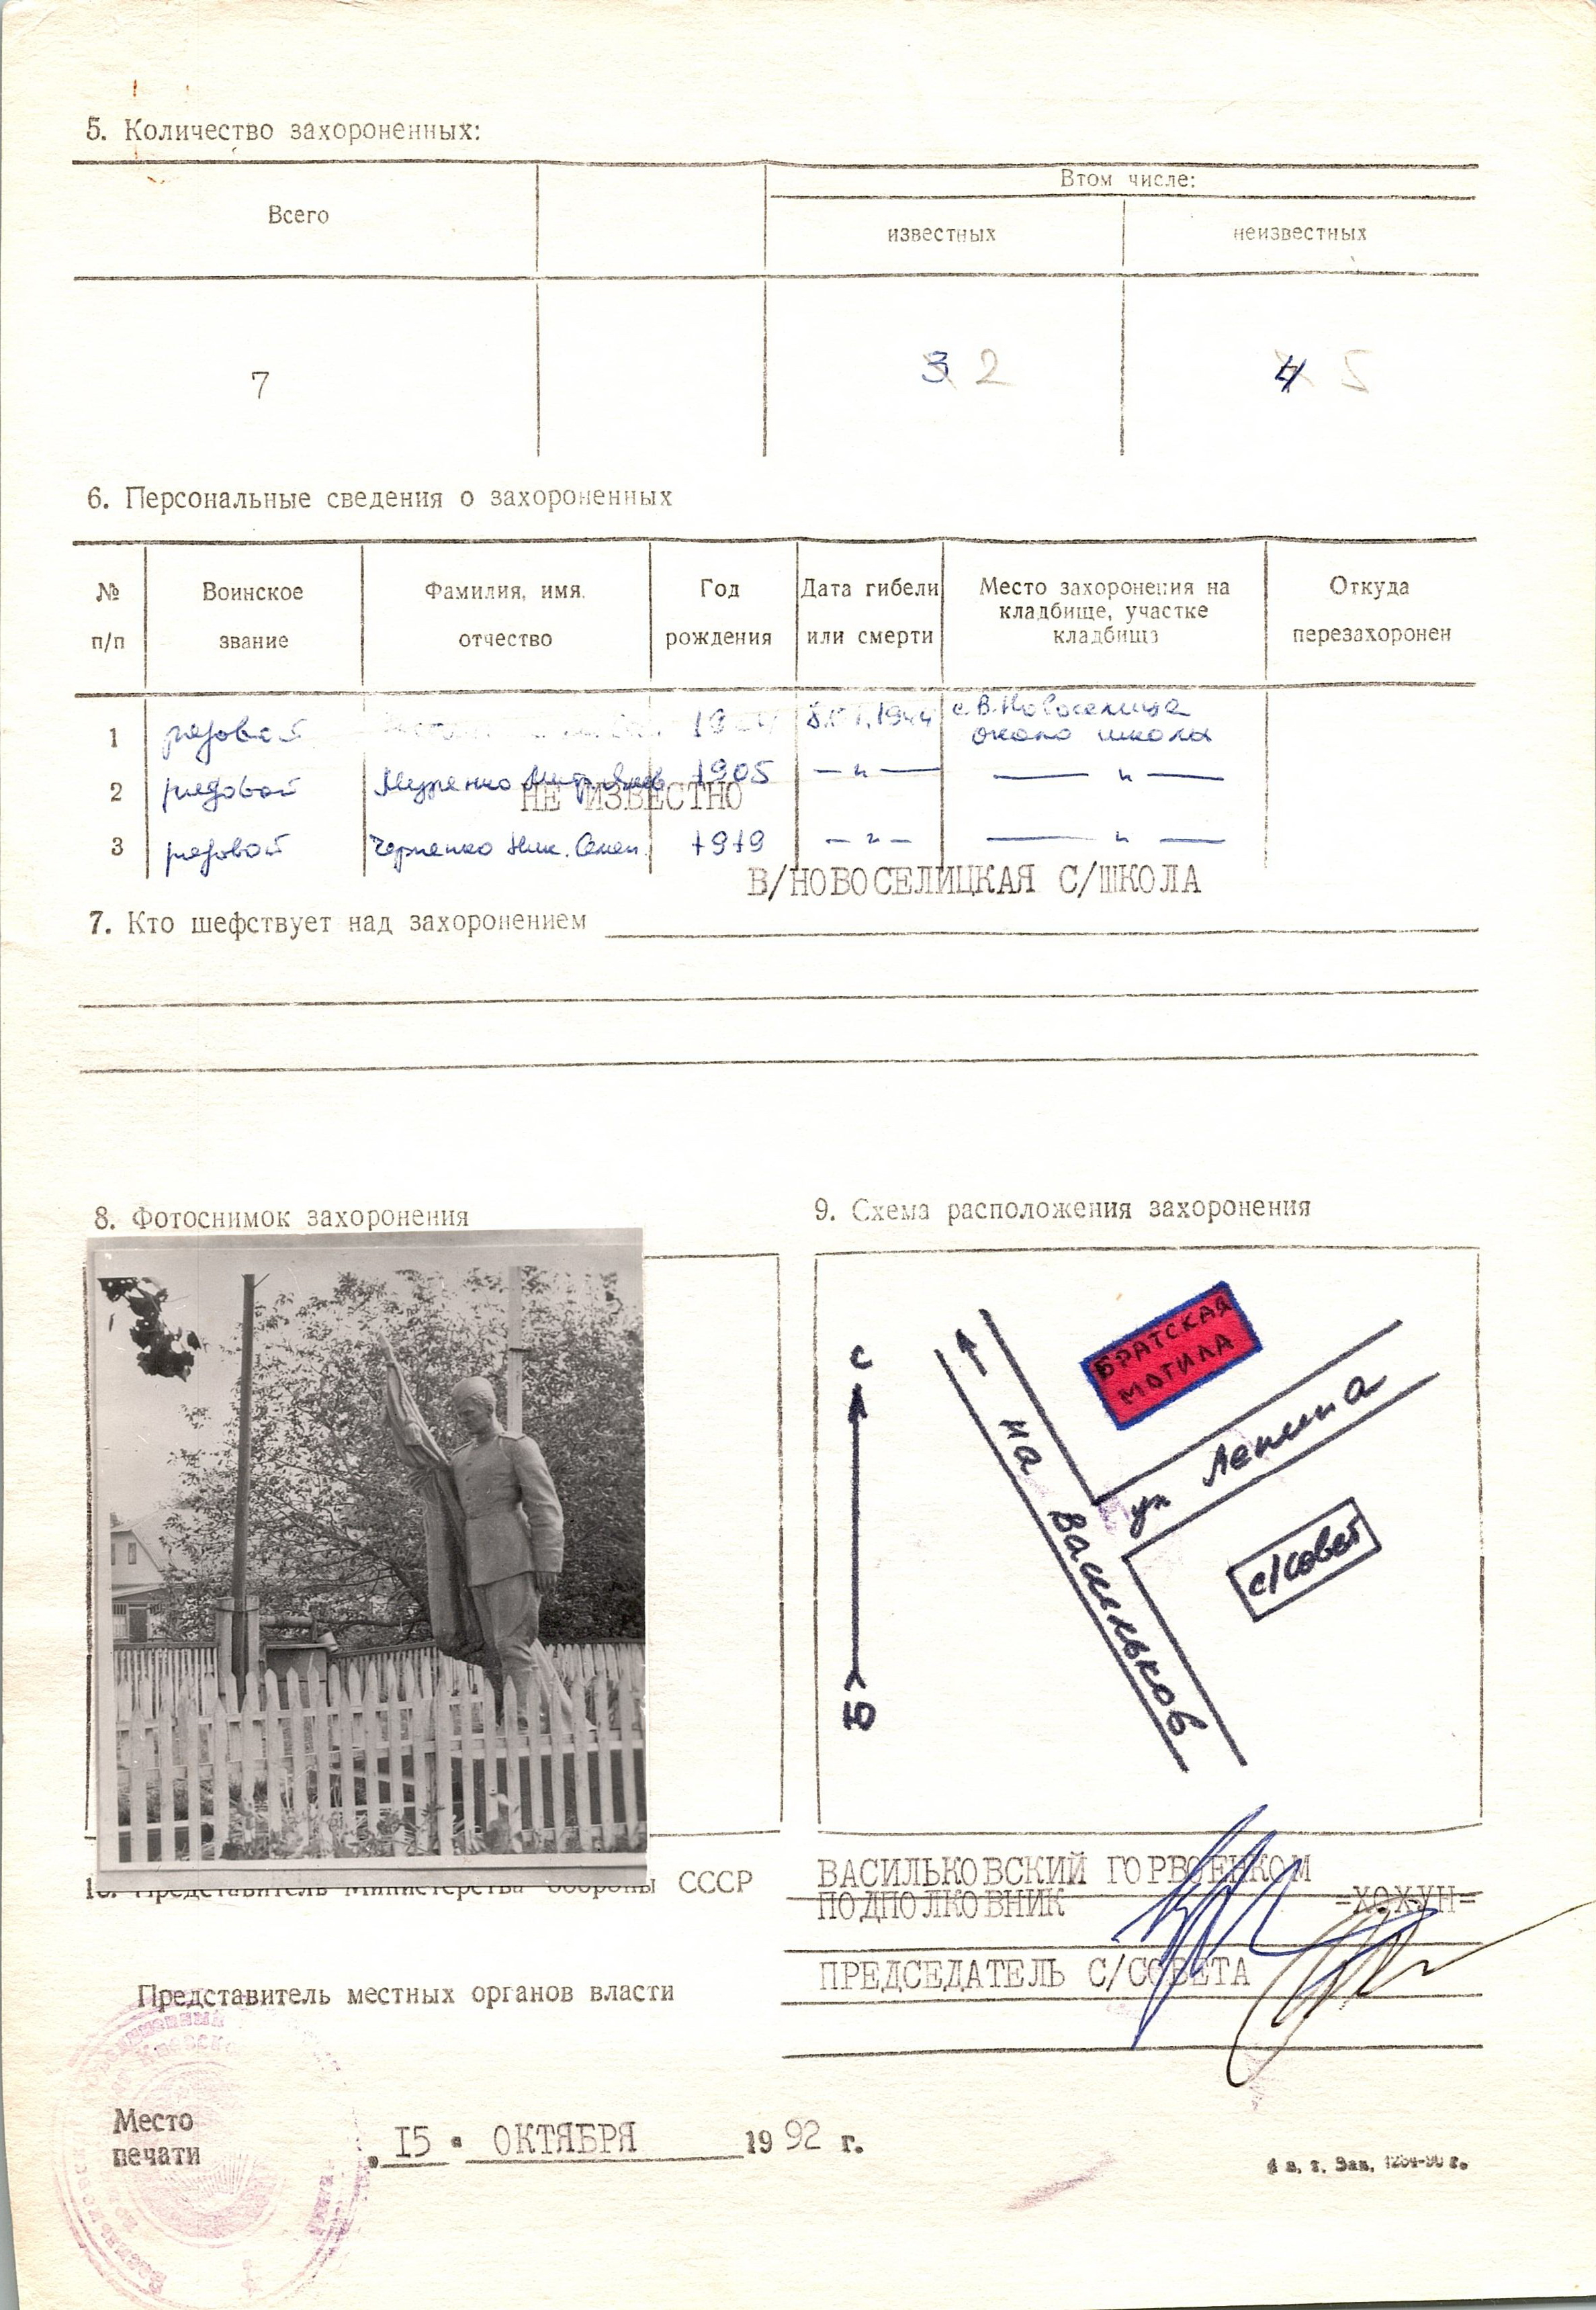 5. Количество захороненных:
Всего
Втом числе:
известных
неизвестных
7
3 2
4 5
6. Персональные сведения о захороненных
№ п/п
Воинское звание
Фамилия, имя. отчество
Год рождения
Дата гибели или смерти
Место захоронения на кладбище, участке кладбища
Откуда перезахоронен
1 рядовой 1944 с. В. Новоселица
около школы
2 рядовой 1905 — " — — " —
НЕ ИЗВЕСТНО
3 рядовой Черненко Ник. Семен. 1919 — " — — " —
В/НОВОСЕЛИЦКАЯ С/ШКОЛА
7. Кто шефствует над захоронением
8. Фотоснимок захоронения
9. Схема расположения захоронения
С
Ю
БРАТСКАЯ
МОГИЛА
на Васильков
ул Ленина
с/совет
10. Представитель Министерства обороны СССР
ВАСИЛЬКОВСКИЙ ГОРВОЕНКОМ
ПОДПОЛКОВНИК =ХОХУН=
ПРЕДСЕДАТЕЛЬ С/СОВЕТА
Представитель местных органов власти
Место
печати
„ 15 " ОКТЯБРЯ 1992 г.